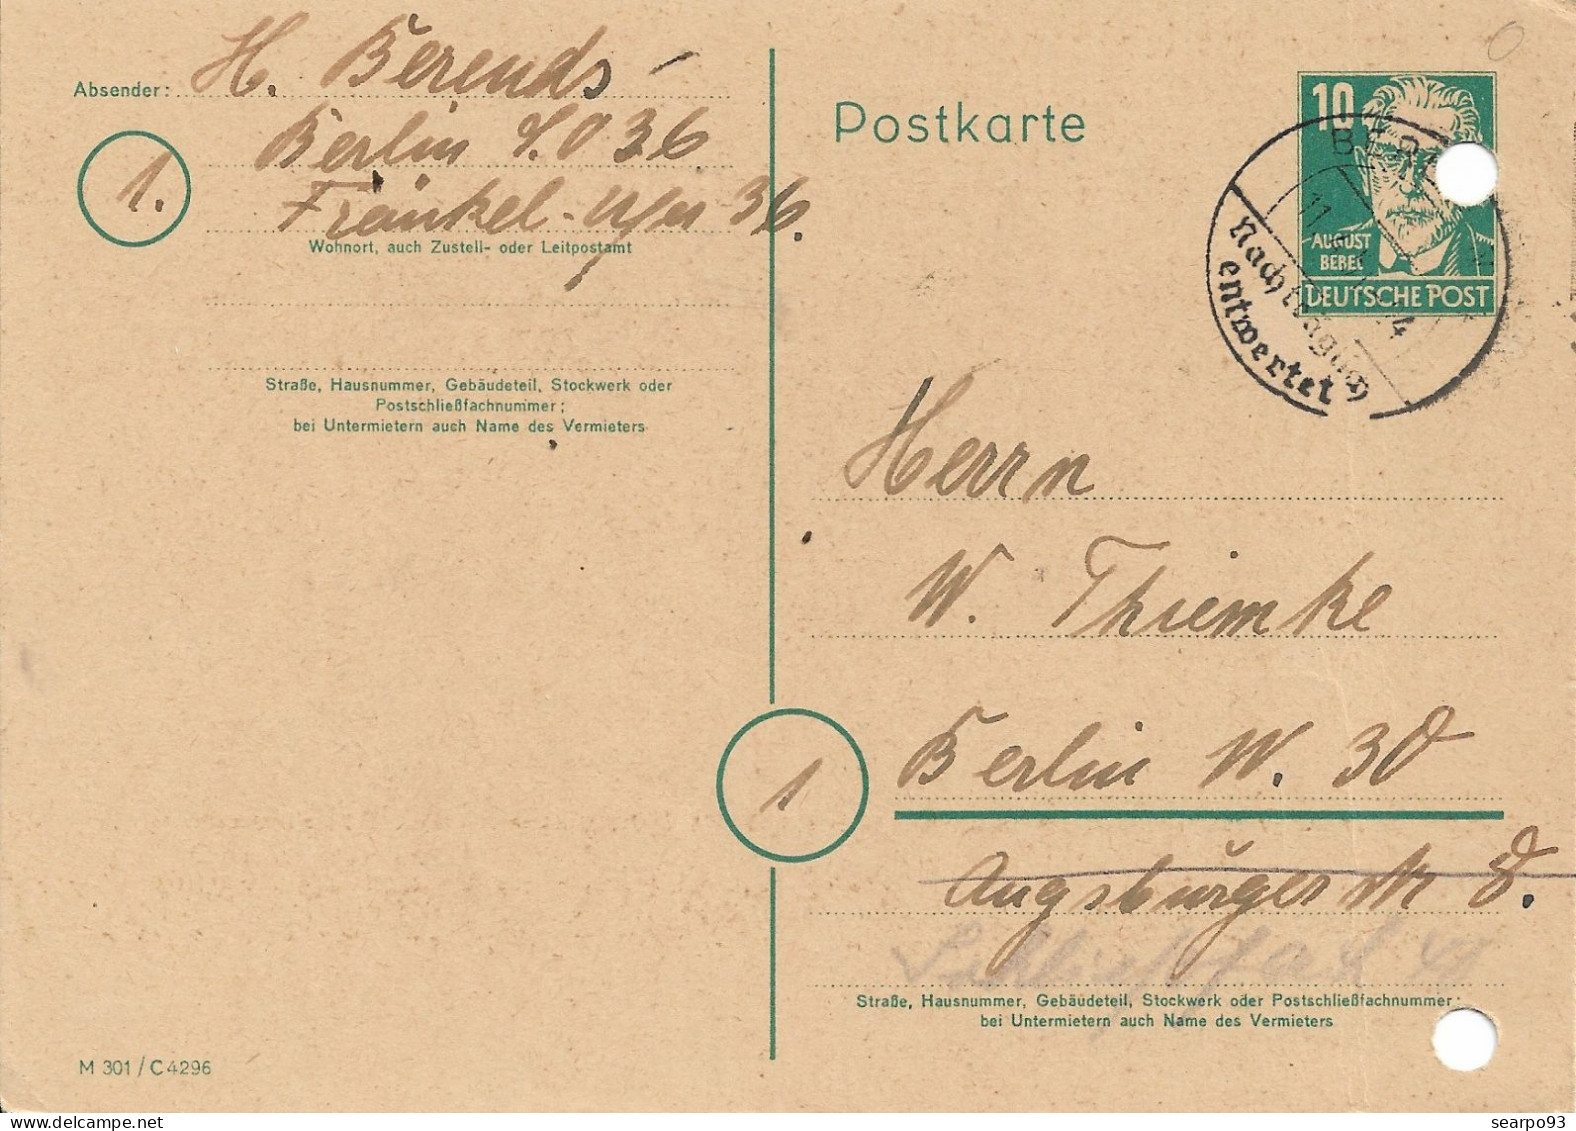 Absender: H. Berends
Berlin S.O 36
Fränkel-Ufer 36.
1.
Wohnort, auch Zustell- oder Leitpostamt
Straße, Hausnummer, Gebäudeteil, Stockwerk oder
Postschließfachnummer;
bei Untermietern auch Name des Vermieters
M 301 / C 4296
Postkarte
10
AUGUST
BEBEL
DEUTSCHE POST
Nachträglich
entwertet
Herrn
W. Thiemke
1
Berlin W. 30
Augsburgerstr 8.
Schließfach
Straße, Hausnummer, Gebäudeteil, Stockwerk oder Postschließfachnummer;
bei Untermietern auch Name des Vermieters
searpo93